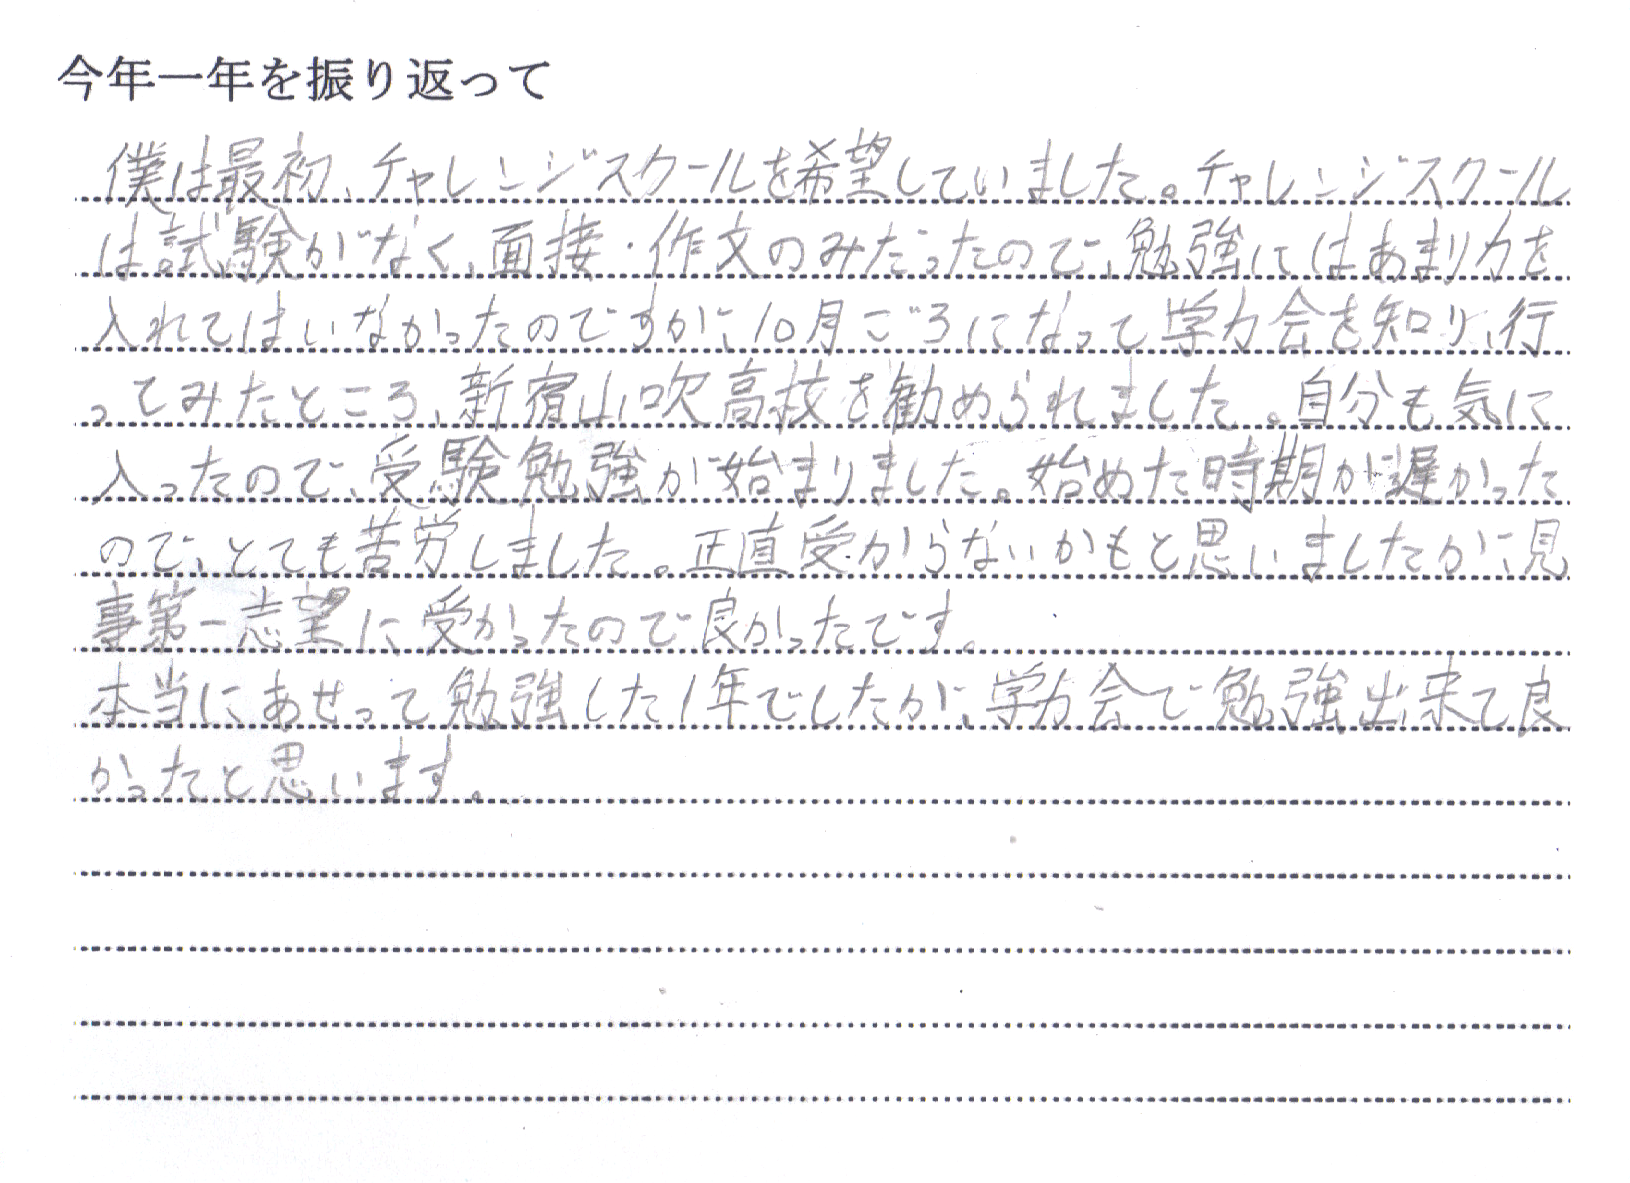 今年一年を振り返って
僕は最初、チャレンジスクールを希望していました。チャレンジスクール
は試験がなく、面接・作文のみだったので、勉強にはあまり力を
入れてはいなかったのですが、10月ごろになって学力会を知り、行
ってみたところ、新宿山吹高校を勧められました。自分も気に
入ったので、受験勉強が始まりました。始めた時期が遅かった
ので、とても苦労しました。正直受からないかもと思いましたが、見
事第一志望に受かったので良かったです。
本当にあせって勉強した1年でしたが、学力会で勉強出来て良
かったと思います。